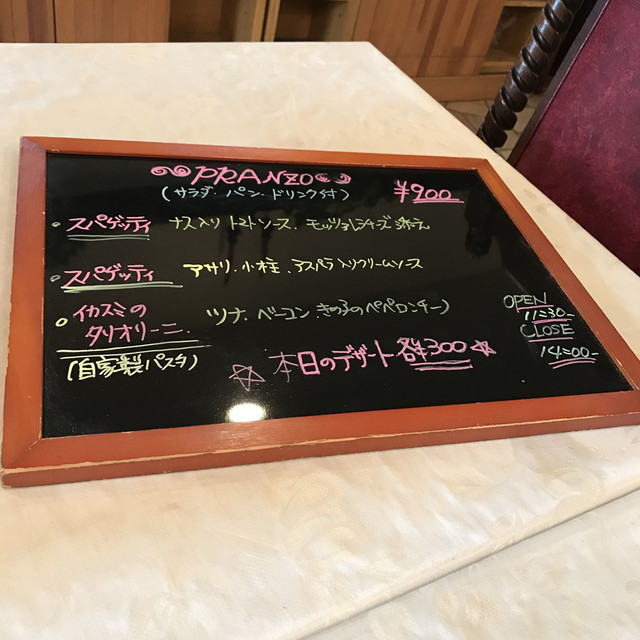 PRANZO
(サラダ・パン・ドリンク付) ¥900
スパゲッティ ナス入りトマトソース、モッツァレラチーズ添え
スパゲッティ アサリ、小柱、アスパラ入りクリームソース
イカスミの
タリオリーニ ツナ、ベーコン きの子のペペロンチーノ
(自家製パスタ)
本日のデザート 各¥300
OPEN
11:30-
CLOSE
14:00-